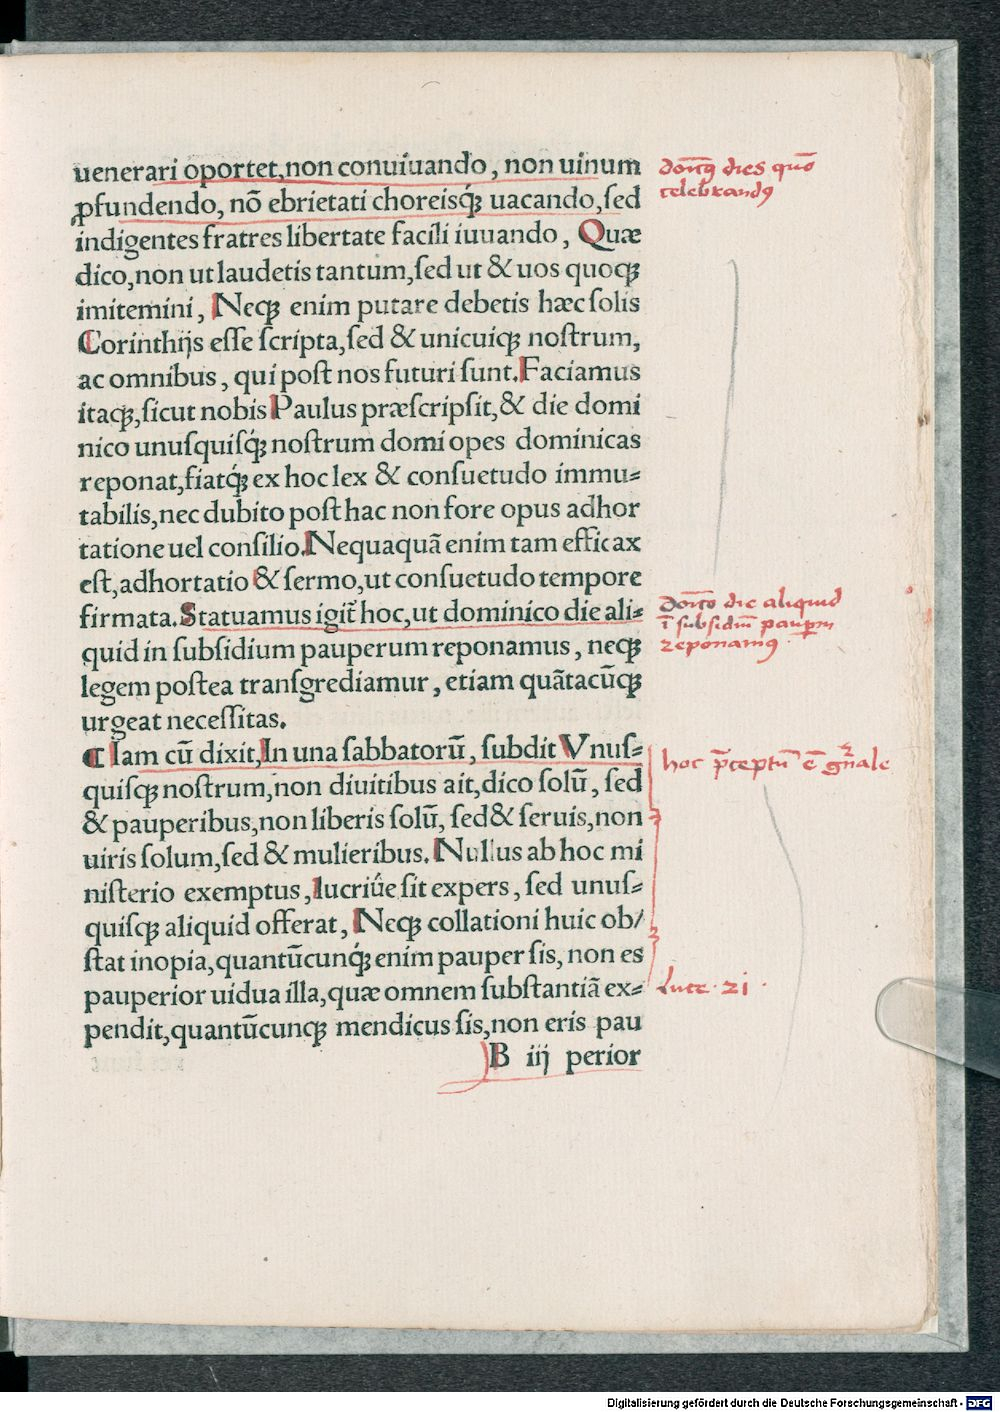 uenerari oportet,non conuiuando, non uinum
ꝓfundendo, nō ebrietati choreisq́ꝫ uacando,sed
indigentes fratres libertate facili iuuando, Quæ
dico,non ut laudetis tantum,sed ut & uos quoqꝫ
imitemini, Neqꝫ enim putare debetis hæc solis
Corinthijs esse scripta,sed & unicuiqꝫ nostrum,
ac omnibus, qui post nos futuri sunt.Faciamus
itaqꝫ,sicut nobis Paulus præscripsit,& die domi
nico unusquisq́ꝫ nostrum domi opes dominicas
reponat,fiatq́ꝫ ex hoc lex & consuetudo immu⸗
tabilis,nec dubito post hac non fore opus adhor
tatione uel consilio.Nequaquā enim tam efficax
est,adhortatio & sermo,ut consuetudo tempore
firmata.Statuamus igit̄ hoc,ut dominico die ali⸗
quid in subsidium pauperum reponamus, neqꝫ
legem postea transgrediamur, etiam quātacūqꝫ
urgeat necessitas.
¶ Iam cū dixit,In una sabbatorū, subdit Vnus⸗
quisqꝫ nostrum,non diuitibus ait,dico solū, sed
& pauperibus,non liberis solū, sed& seruis,non
uiris solum,sed & mulieribus.Nullus ab hoc mi
nisterio exemptus,lucriúe sit expers, sed unus⸗
quisqꝫ aliquid offerat, Neqꝫ collationi huic ob/
stat inopia,quantūcunq́ꝫ enim pauper sis, non es
pauperior uidua illa,quæ omnem substantiā ex⸗
pendit,quantūcunqꝫ mendicus sis,non eris pau
B iij perior
dies quō
celebrandꝰ
die aliquid
ī subsidiū pauꝑum
reponamꝰ
hoc p̄ceptū ē gn̄ale
Luce · 21 ·
Digitalisierung gefördert durch die Deutsche Forschungsgemeinschaft - DFG